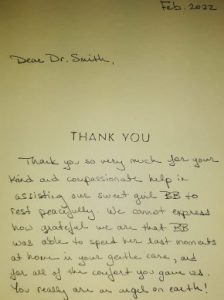 Feb. 2022
Dear Dr. Smith,
THANK YOU
Thank you so very much for your
kind and compassionate help in
assisting our sweet girl BB to
rest peacefully. We cannot express
how grateful we are that BB
was able to spend her last moments
at home in your gentle care, and
for all of the comfort you gave us.
You really are an angel on earth!